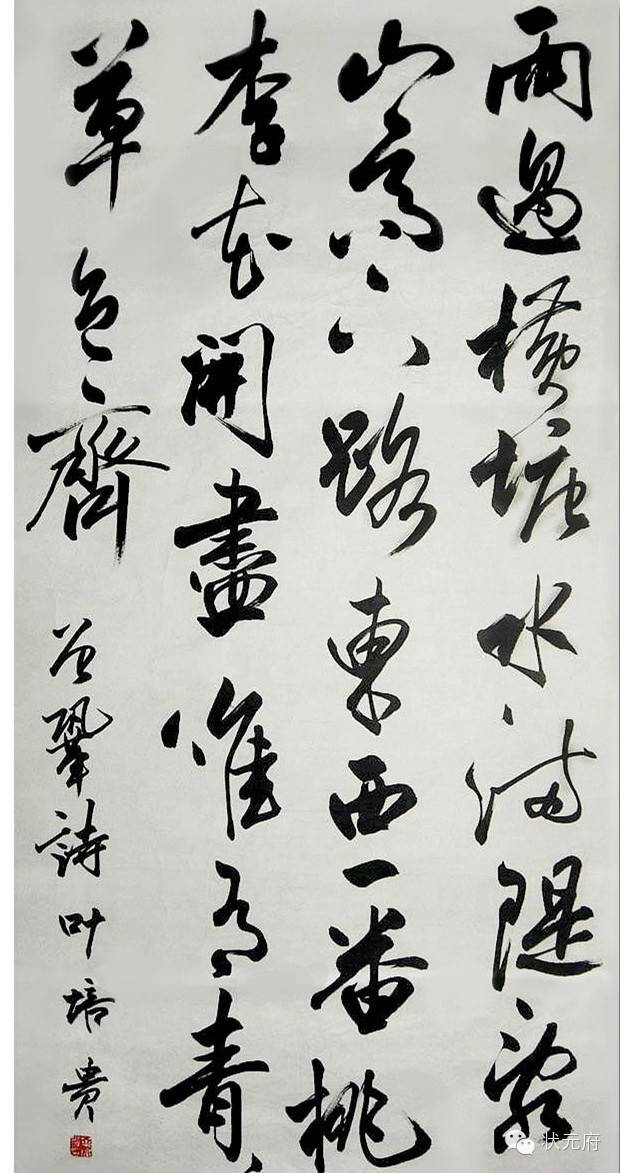 雨過橫塘水滿隄亂
山高下路東西一番桃
李花開盡惟有青々
草色齊
曾鞏詩叶培贵
状元府